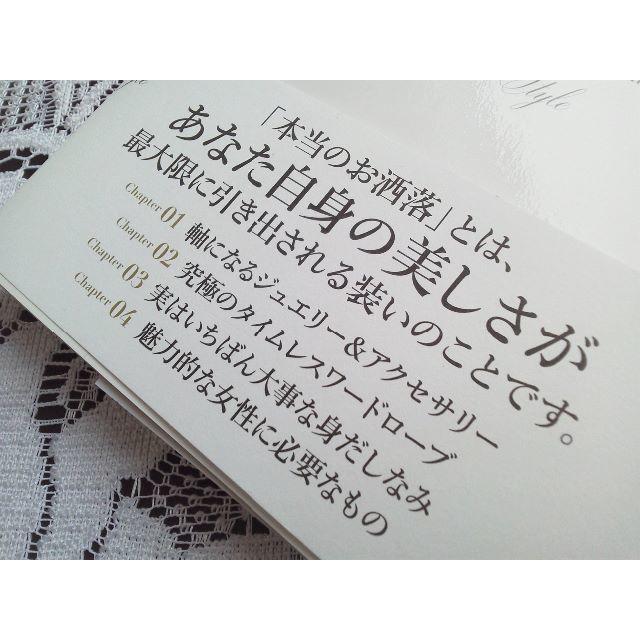 Style
「本当のお洒落」とは、
あなた自身の美しさが
最大限に引き出される装いのことです。
Chapter 01 軸になるジュエリー&アクセサリー
Chapter 02 究極のタイムレスワードローブ
Chapter 03 実はいちばん大事な身だしなみ
Chapter 04 魅力的な女性に必要なもの